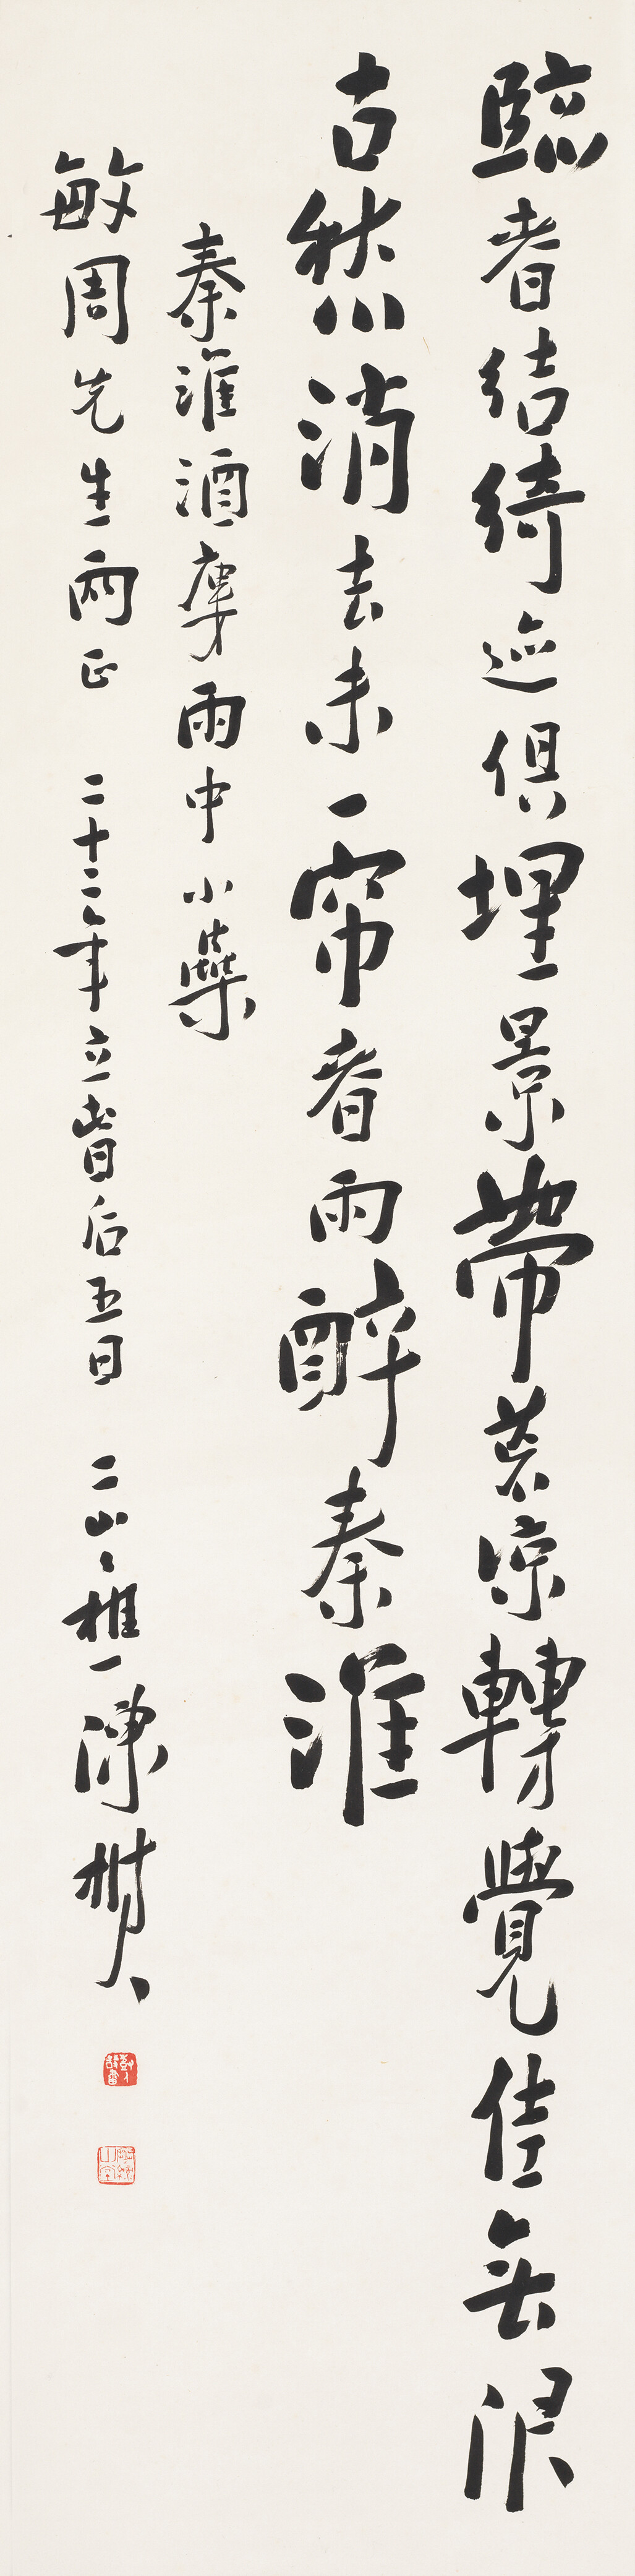 臨春結綺迹俱埋景帶荒涼轉覺佳無限
古愁消去未一帘春雨醉秦淮
秦淮酒廔雨中小
敏周先生兩正 二十二年立春后五日 二山山樵陳樹人